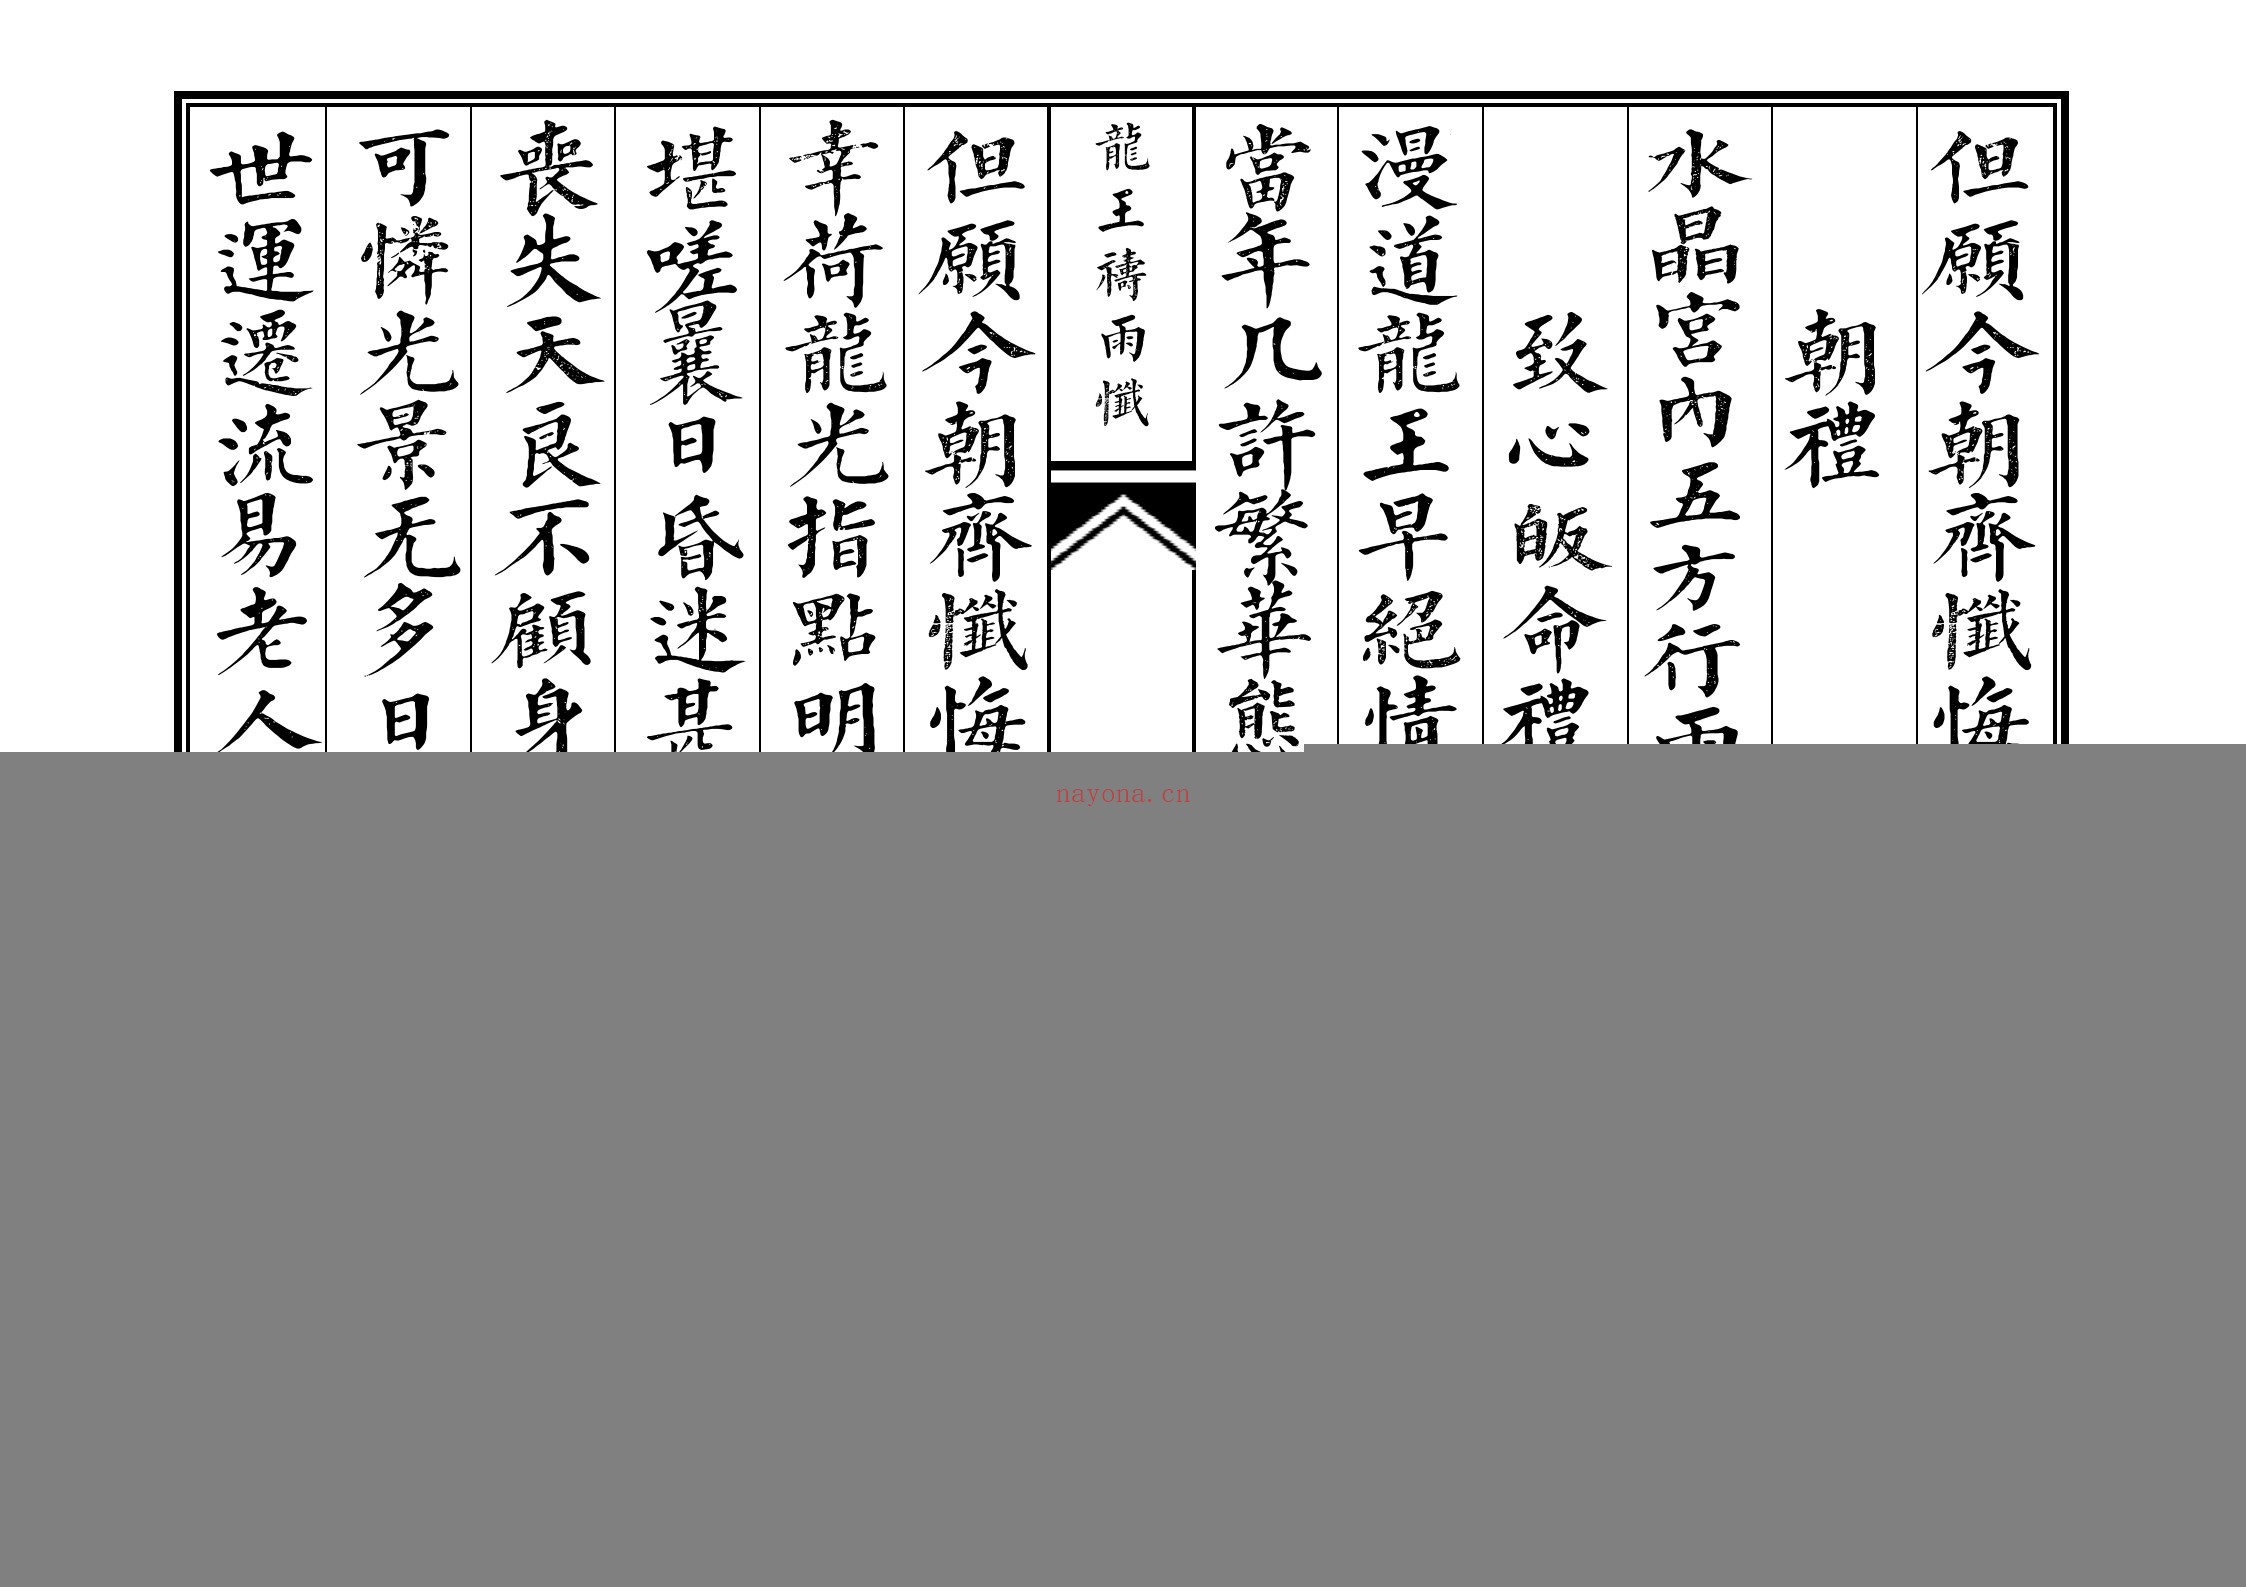 但願今朝齊懺悔
朝禮
水晶宮內五方行雨
致心皈命禮
漫道龍王早絕情
當年几許繁華態
龍王禱雨懺
但願今朝齊懺悔
幸荷龍光指點明
堪嗟曩日昏迷甚
喪失天良不顧身
可憐光景无多日
世運遷流易老人
nayona.cn